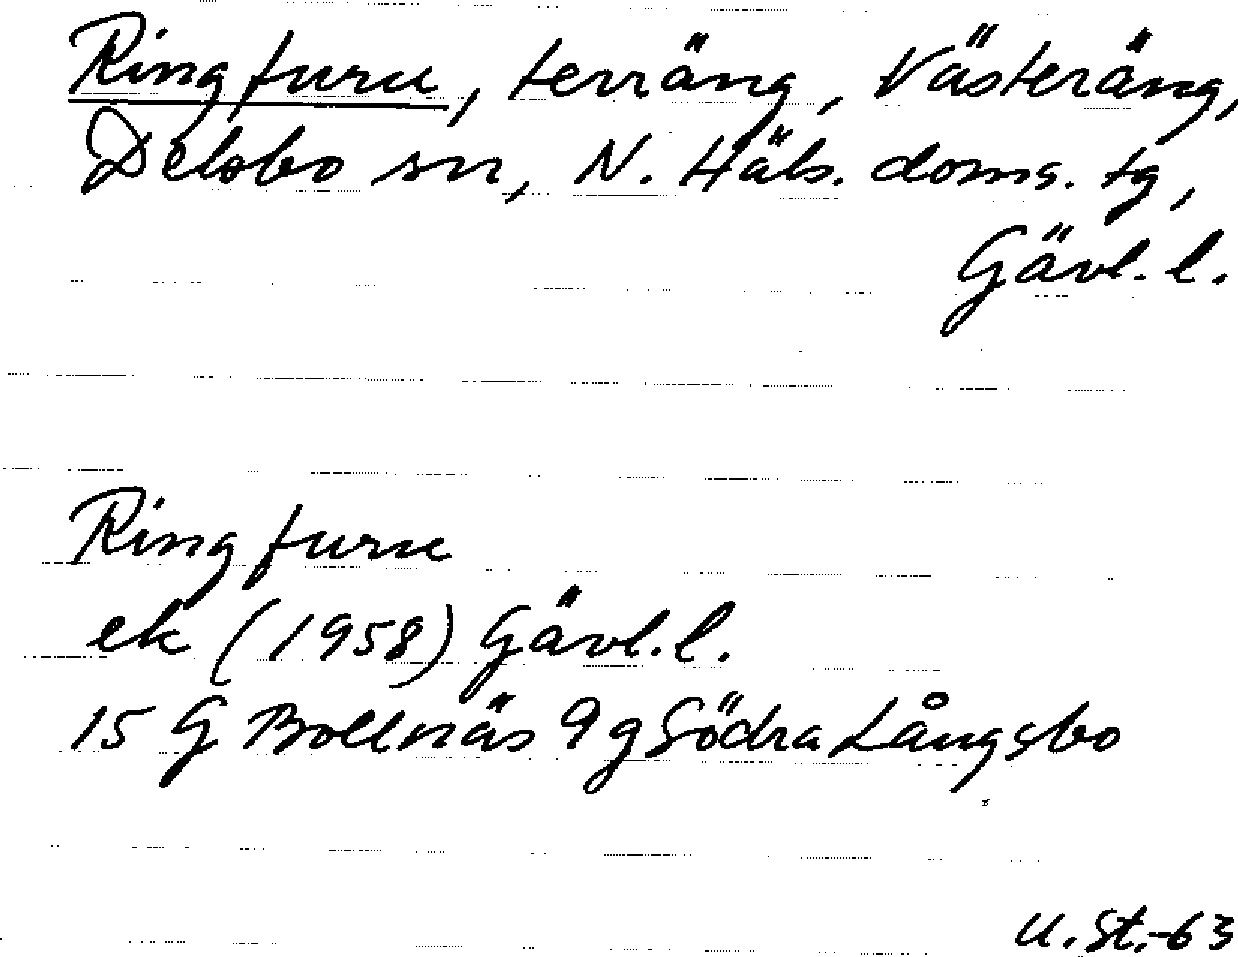 Ringfuru, terräng, Västeräng,
Delsbo sn, N. Häls. doms. tg,
Gävl. l.
Ringfuru
ek (1958) Gävl. l.
15 G Bollnäs 9 g Södra Långsbo
U. St. -63